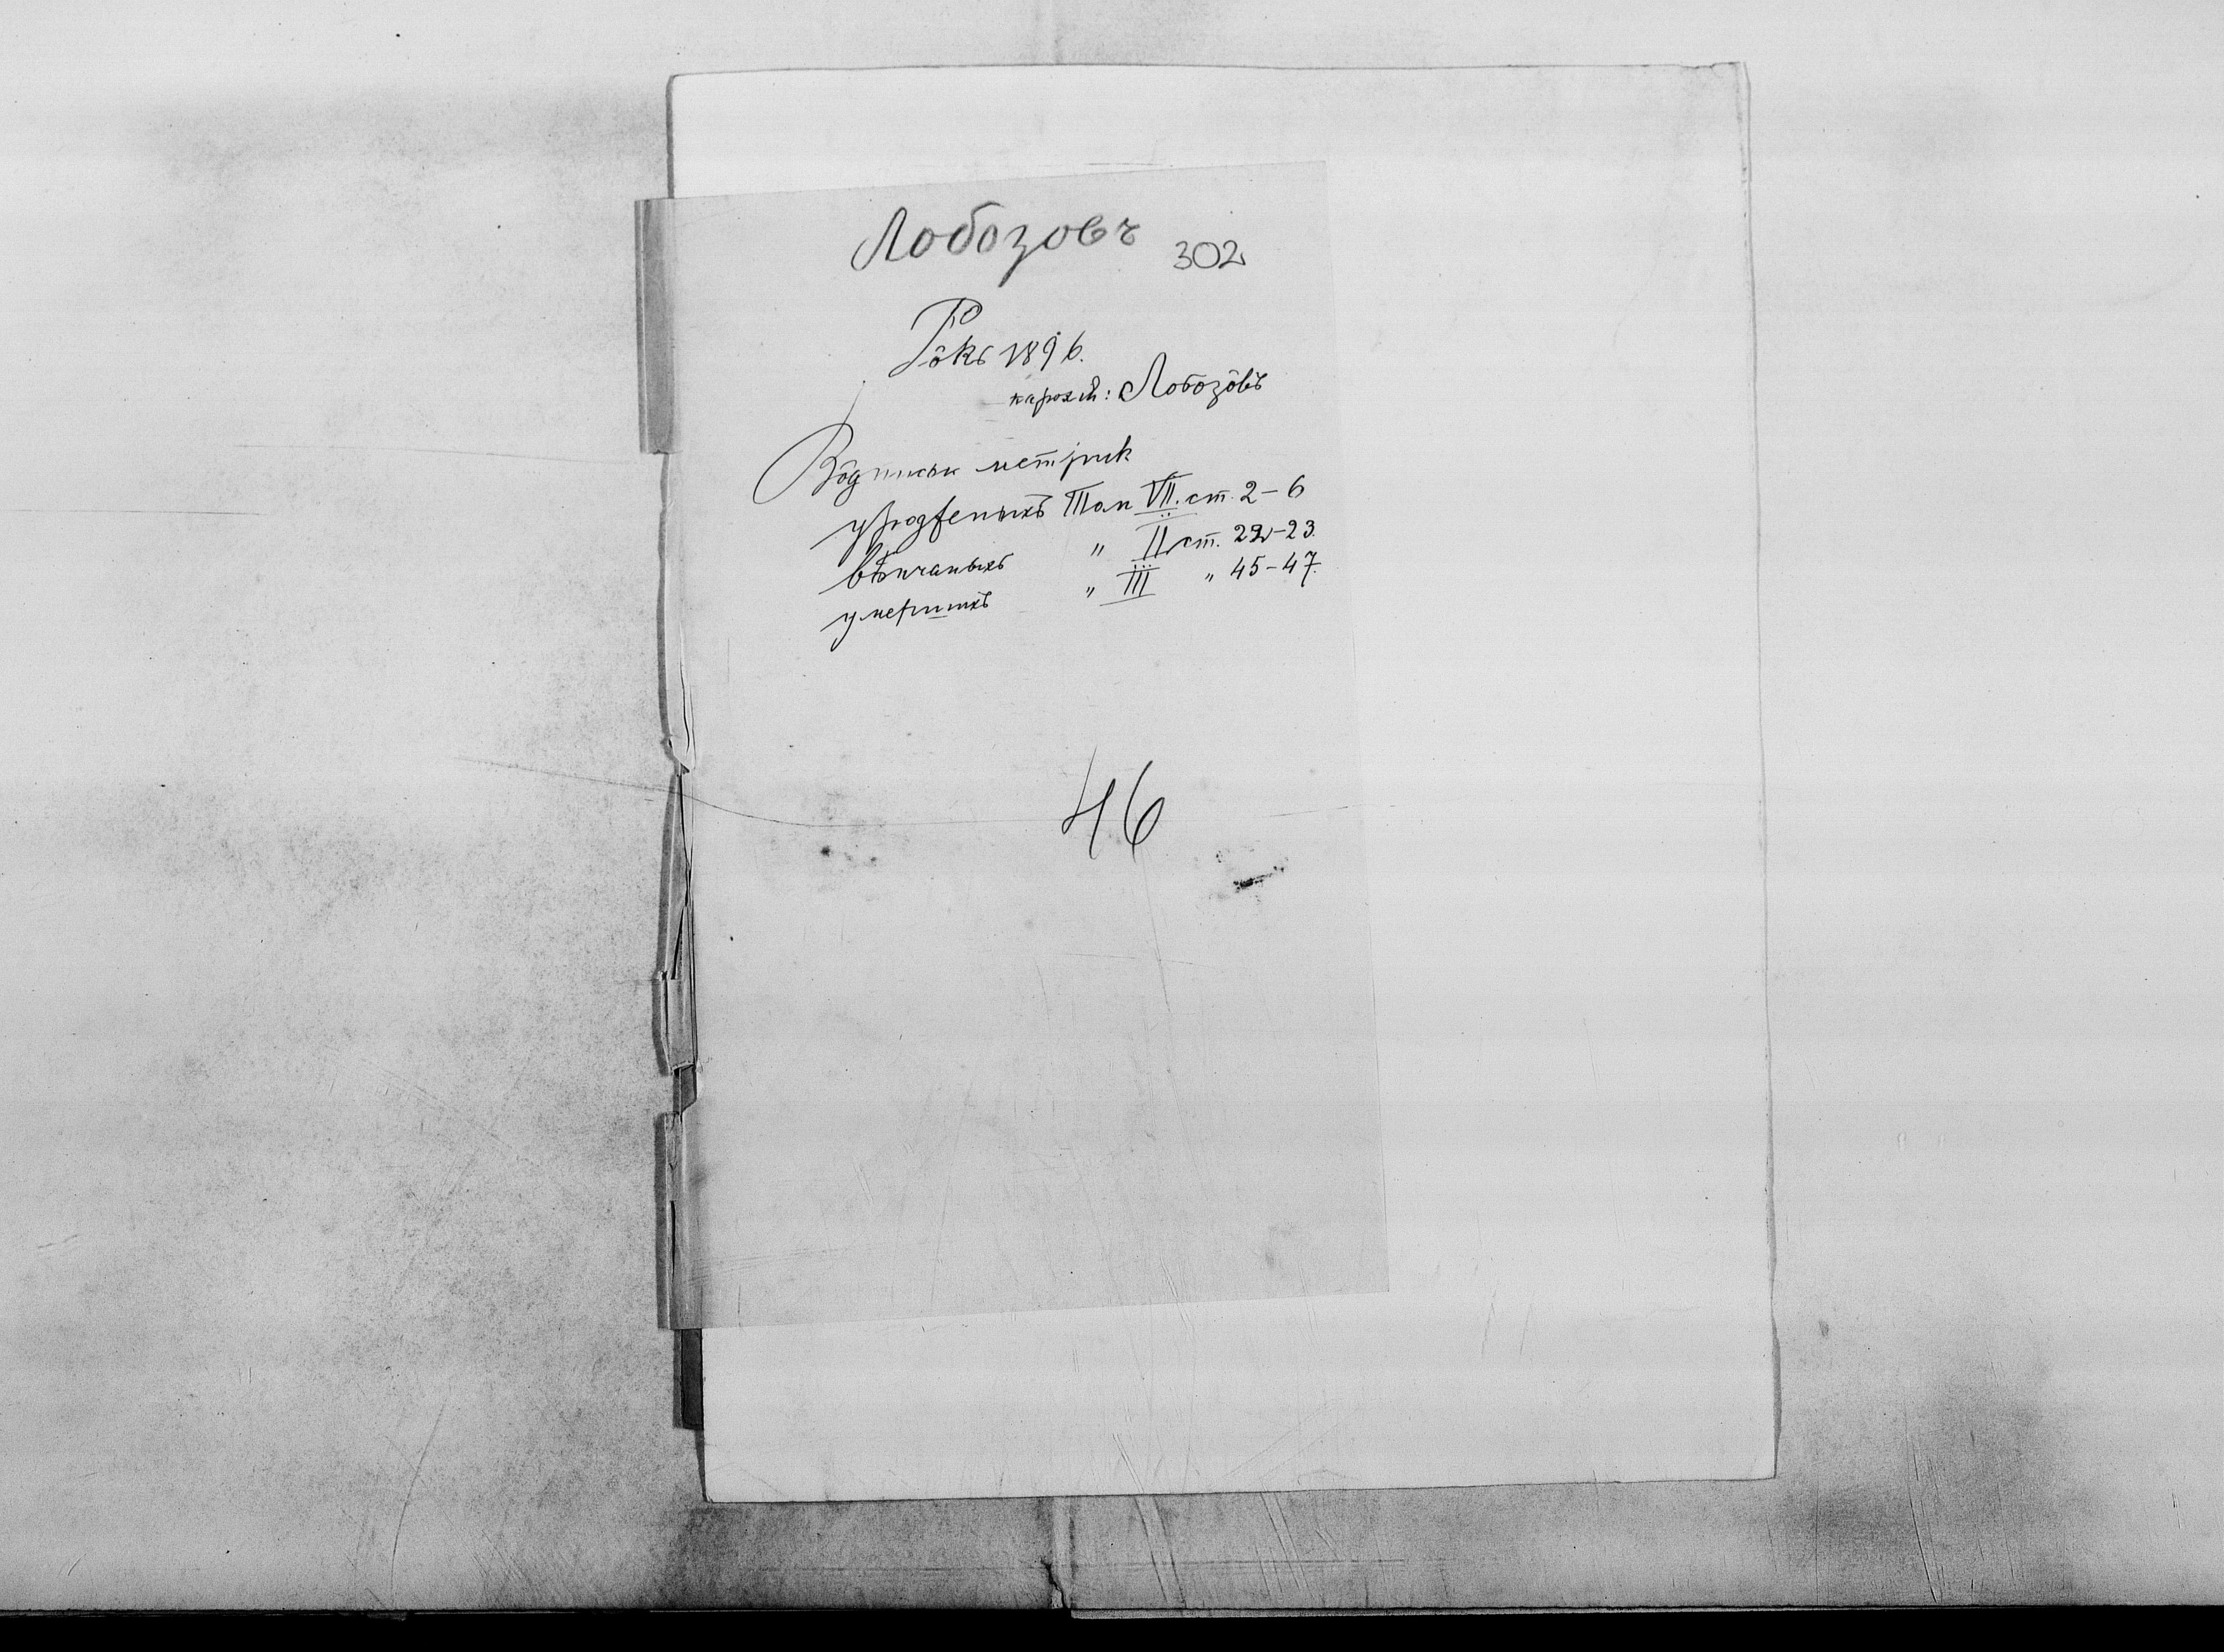 Лобозовъ 302
Рôкъ 1896.
парохій: Лобозôвъ
Вôдписы метрик
урожденыхъ Том VII. ст. 2-6
вѣнчаныхъ " II ст. 22-23.
умершихъ " III " 45-47.
46